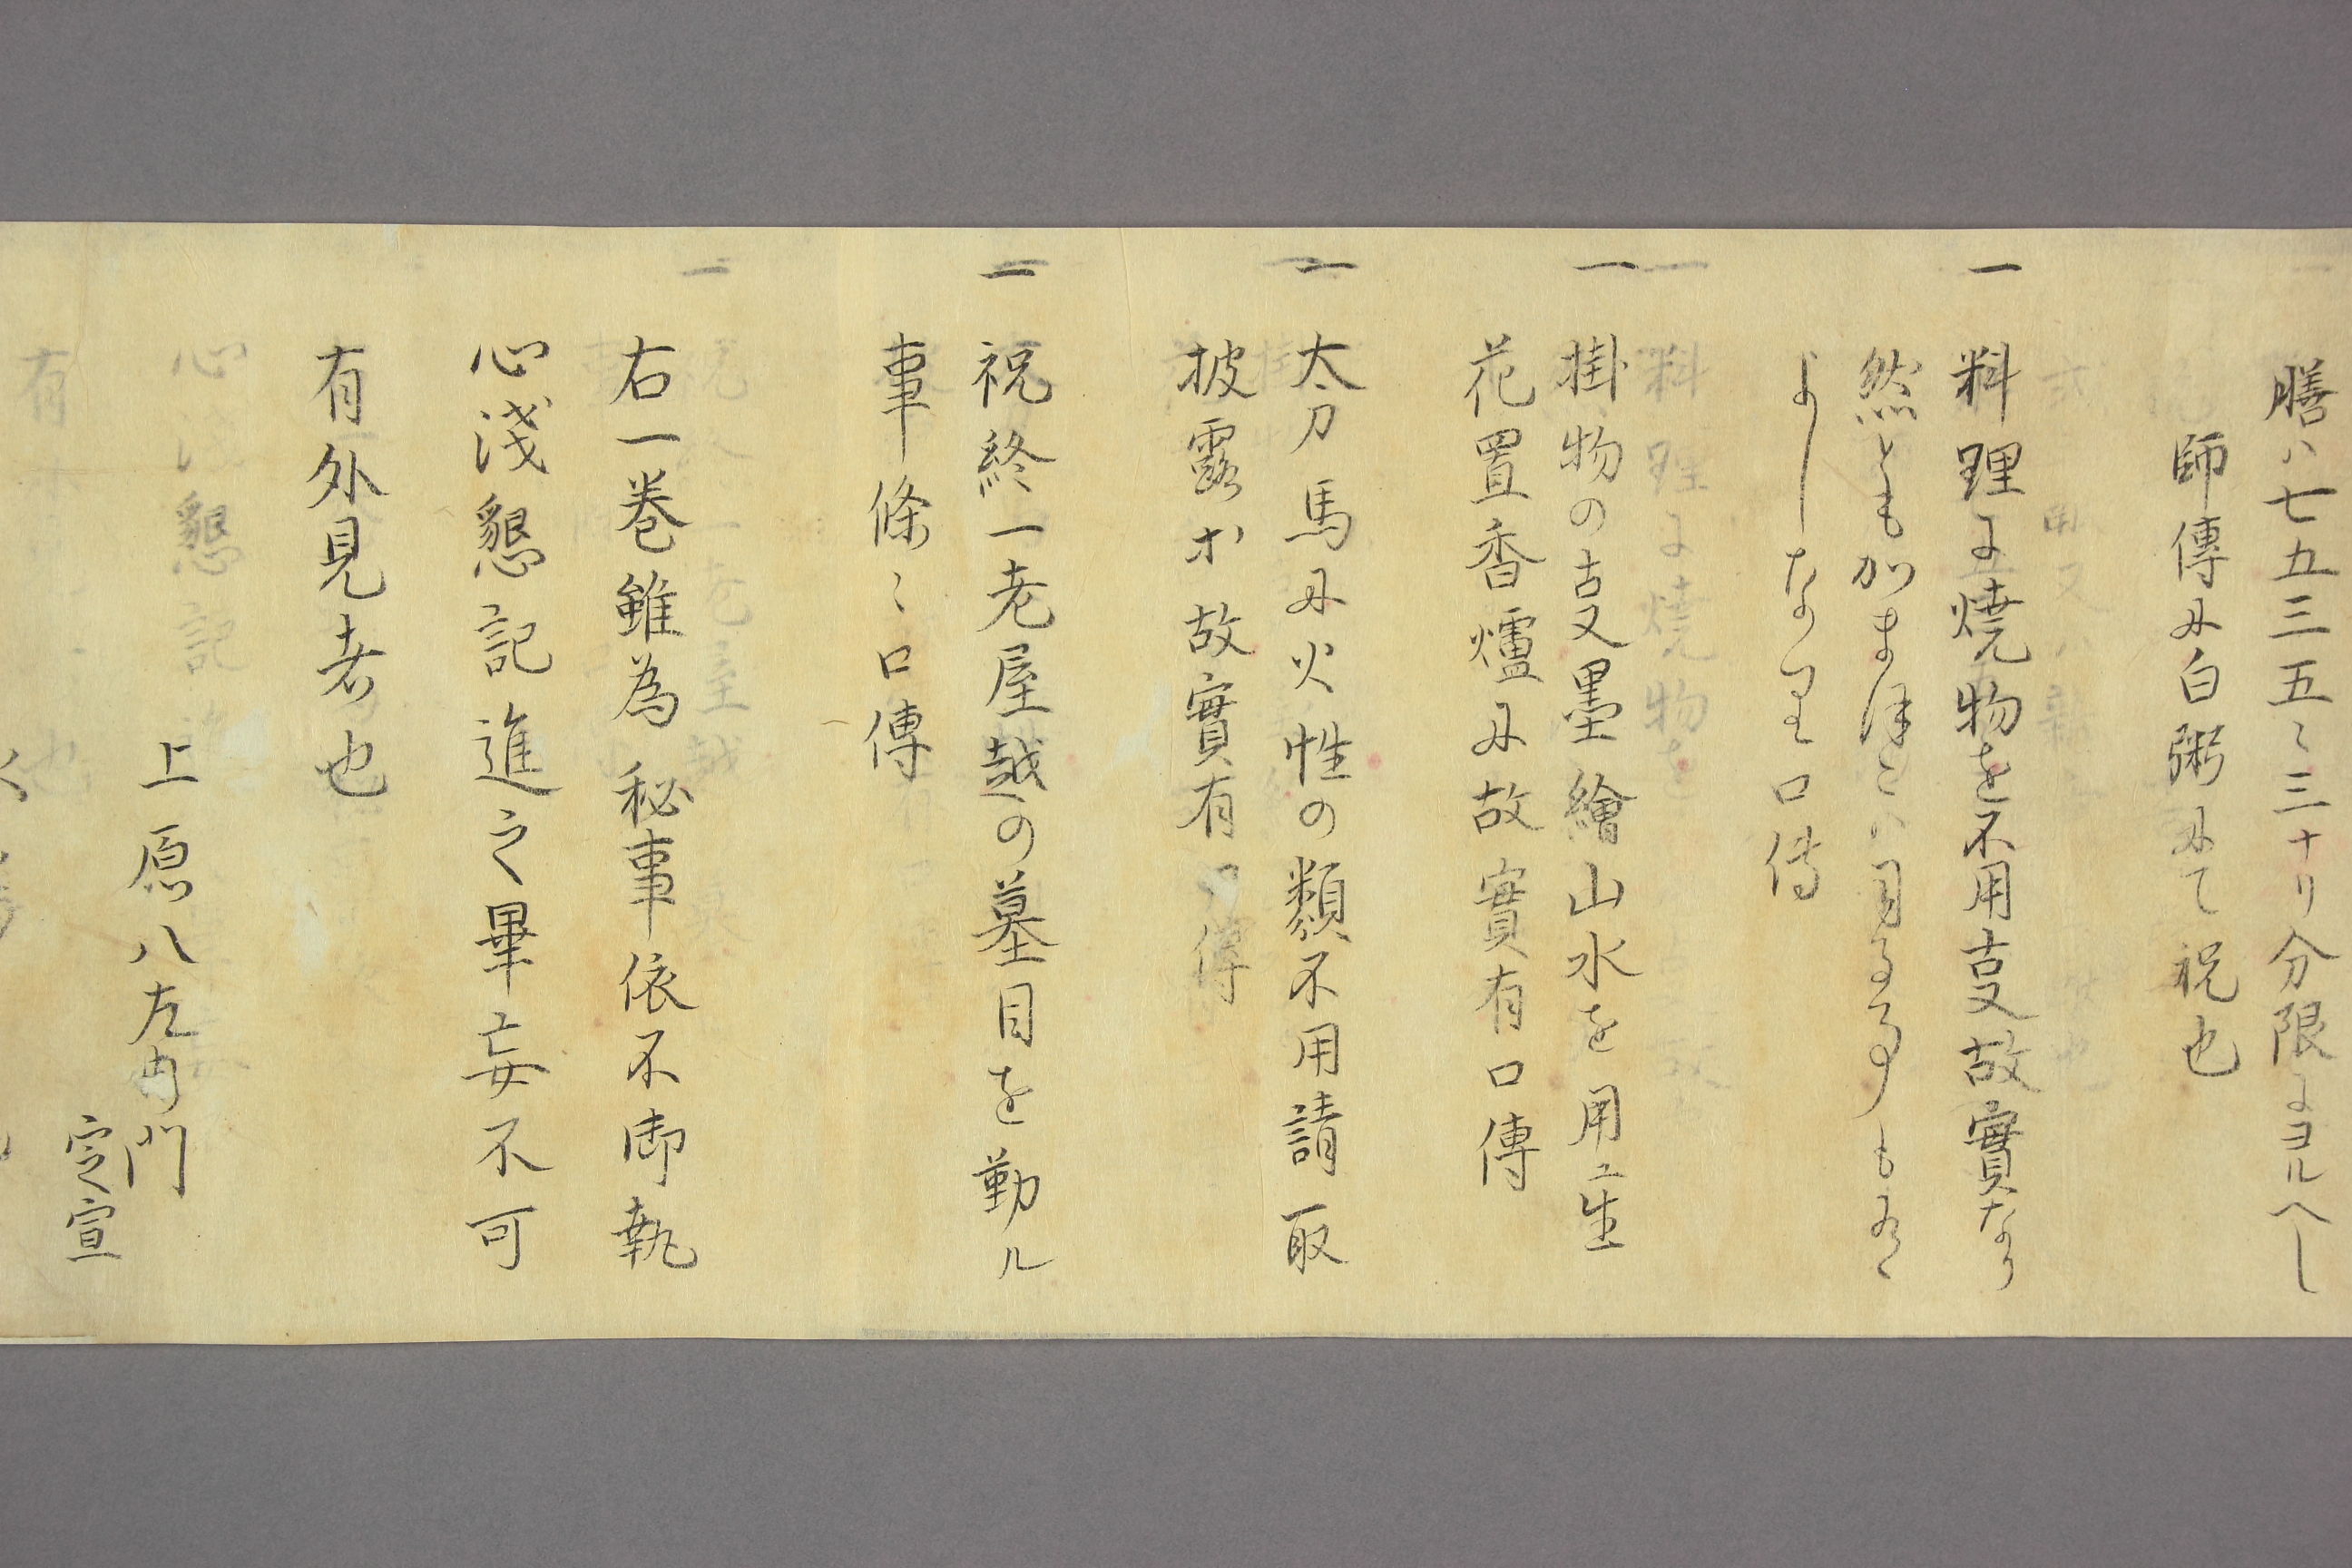 膳ハ七五三五〻三ナリ分限ニヨルヘし
師傳ニ白粥ニて祝也
一 料理ニ焼物を不用叓故實なり
然ともかまほこハ用る事も有
よしなり口伝
一 掛物の叓墨繪山水を用ユ生
花置香爐ニ故實有口傳
一 太刀馬ニ火性の類不用請取
披露ホ故實有口傳
一 祝終一老屋越の墓目を勤ル
事條〻口傳
右一巻雖為秘事依不御執
心淺懇記進之畢妄不可
有外見者也
上原八左衛門
定宣